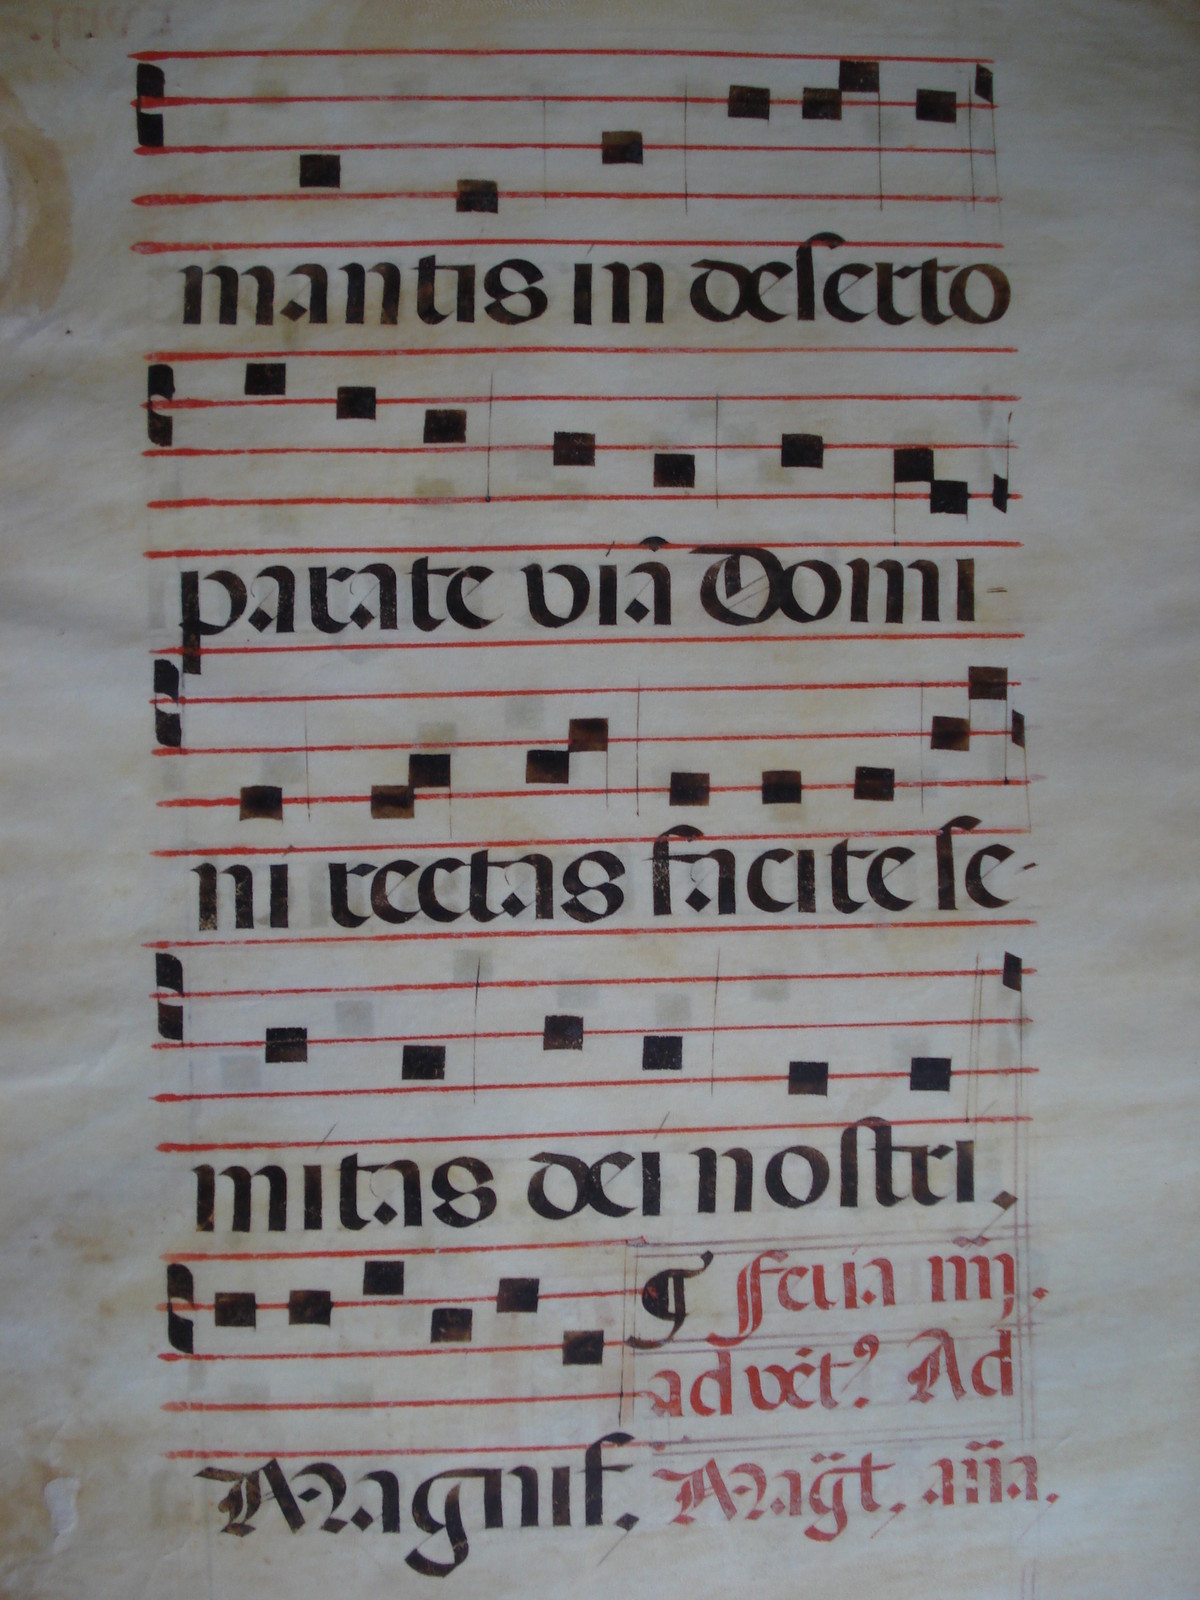 mantis in deserto
parate viā Domi-
ni rectas facite se-
mitas dei nostri.
¶ feria iiij.
advēt⁹. Ad
Magnif. Mag̃t. aña.